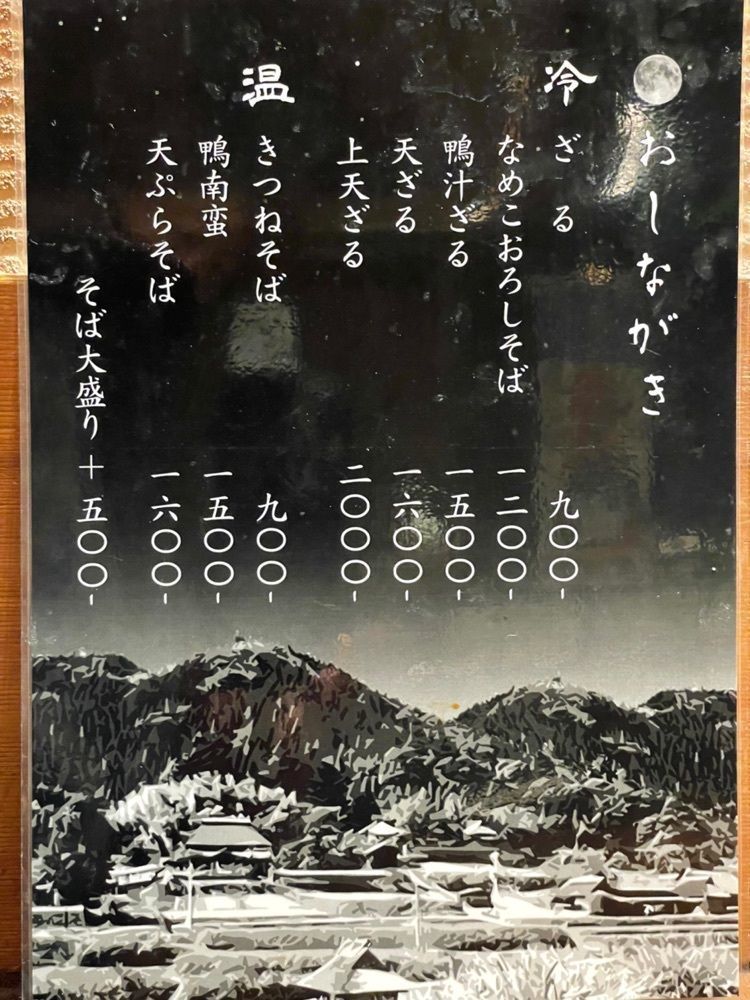 おしながき
冷
ざる 九〇〇-
なめこおろしそば 一二〇〇-
鴨汁ざる 一五〇〇-
天ざる 一六〇〇-
上天ざる 二〇〇〇-
温
きつねそば 九〇〇-
鴨南蛮 一五〇〇-
天ぷらそば 一六〇〇-
そば大盛り+五〇〇-